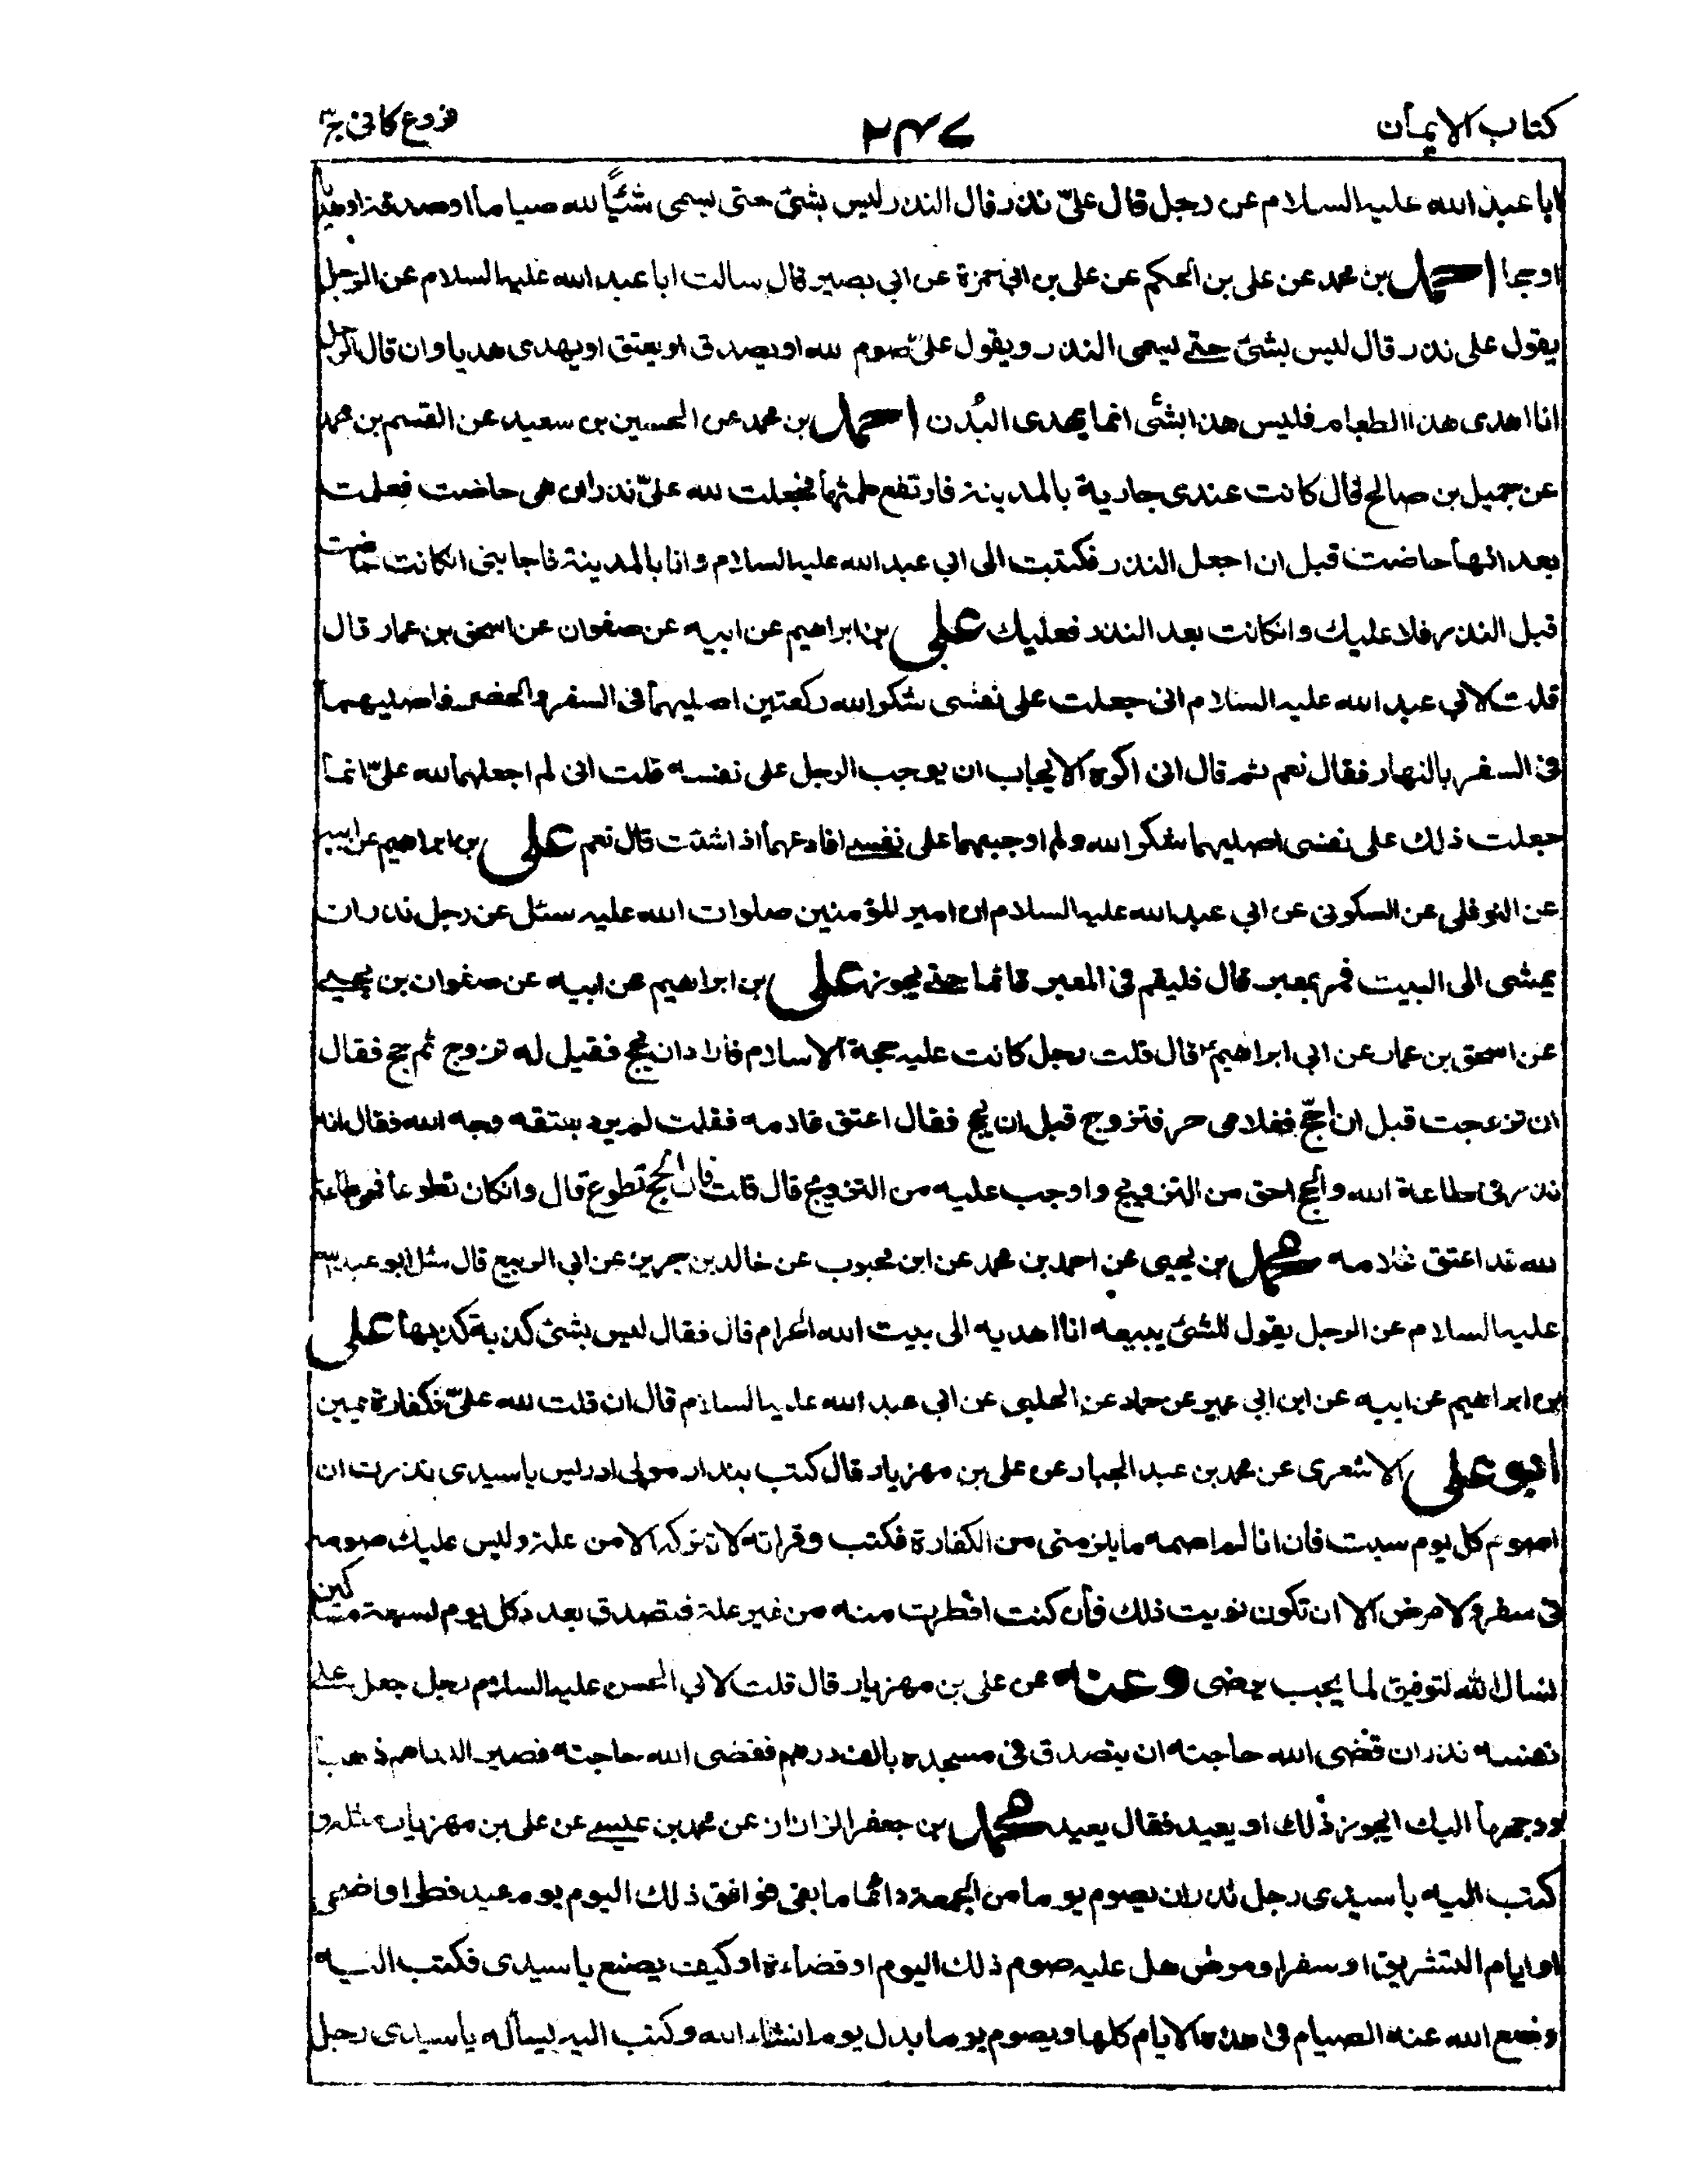 كتاب الايمان
٢٤٧
فروع كافى ج٣
ابا عبد الله عليه السلام عن رجل قال علىّ نذر قال النذر ليس بشئ حتى يسمى شئيًا لله صياما او صدقة او هديا
او حجا احمد بن محمد عن على بن الحكم عن على بن ابى حمزة عن ابي بصير قال سالت ابا عبد الله عليه السلام عن الرجل
يقول على نذر قال ليس بشئ حتے يسمى النذر و يقول علىّ صوم لله او يصدق او يعتق او يهدى هديا وان قال الرجل
انا اهدى هذا الطعام فليس هذا بشئى انما يهدى البُدن احمد بن محمد عن الحسين بن سعيد عن القسم بن محمد
عن جميل بن صالح قال كانت عندى جارية بالمدينة فارتفع طمثها فجعلت لله علىّ نذر ان هى حاضت فعلمت
بعد انها حاضت قبل ان اجعل النذر فكتبت الى ابي عبد الله عليه السلام و انا بالمدينة فاجابنى انكانت حاضت
قبل النذر فلا عليك و انكانت بعد النذر فعليك على بن ابراهيم عن ابيه عن صفوان عن اسحق بن عمار قال
قلت لابي عبد الله عليه السلام انى جعلت على نفسى شكرا لله ركعتين اصليهما فى السفر والحضر فاصليهما
فى السفر بالنهار فقال نعم ثم قال انى اكره الايجاب ان يوجب الرجل على نفسه قلت انى لم اجعلهما لله علىّ انما
جعلت ذلك على نفسى اصليهما شكرا لله و لم اوجبهما على نفسے افادعهما اذا شئت قال نعم على بن ابراهيم عن ابيه
عن النوفلى عن السكونى عن ابي عبد الله عليه السلام ان امير المؤمنين صلوات الله عليه سئل عن رجل نذر ان
يمشى الى البيت فمر بمعبر قال فليقم فى المعبر قائما حتے يجوز على بن ابراهيم عن ابيه عن صفوان بن يحيے
عن اسحق بن عمار عن ابي ابراهيم ع قال قلت رجل كانت عليه حجة الاسلام فاراد ان يحج فقيل له تزوج ثم حج فقال
ان تزوجت قبل ان احجّ فغلامى حر فتزوج قبل ان يحج فقال اعتق غلامه فقلت لم يرد بعتقه وجه الله فقال انه
نذر فى طاعة الله والحج احق من التزويج و اوجب عليه من التزويج قال قلت فان الحج تطوع قال و انكان تطوعا فهو طاعة
لله قد اعتق غلامه محمد بن يحيى عن احمد بن محمد عن ابن محبوب عن خالد بن جرير عن ابي الربيع قال سئل ابو عبد الله
عليه السلام عن الرجل يقول للشئ يبيعه انا اهديه الى بيت الله الحرام قال فقال ليس بشئ كذبة كذبها على
بن ابراهيم عن ابيه عن ابن ابي عمير عن حماد عن الحلبى عن ابي عبد الله عليه السلام قال ان قلت لله علىّ فكفارة يمين
ابو على الاشعرى عن محمد بن عبد الجبار عن على بن مهزيار قال كتب بندار مولى ادريس يا سيدى نذرت ان
اصوم كل يوم سبت فان انا لم اصمه ما يلزمنى من الكفارة فكتب و قراته لا تتركه الا من علة و ليس عليك صومه
فى سفر ولا مرض الا ان تكون نويت ذلك فأن كنت افطرت منه من غير علة فتصدق بعدد كل يوم لسبعة مساكين
نسال الله التوفيق لما يحب يرضى وعنه عن على بن مهزيار قال قلت لابي الحسن عليه السلام رجل جعل علے
نفسه نذر ان قضى الله حاجته ان يتصدق فى مسجده بالف درهم فقضى الله حاجته فصير الدراهم ذهبا
ووجهها اليك ايجوز ذلك او يعيد فقال يعيد محمد بن جعفر الرزاز عن محمد بن عيسے عن على بن مهزيار مثله و
كتب اليه يا سيدى رجل نذر ان يصوم يوما من الجمعة دائما ما بقى فوافق ذلك اليوم يوم عيد فطر او اضحى
او ايام التشريق او سفر او مرض هل عليه صوم ذلك اليوم او قضاءه او كيف يصنع يا سيدى فكتب اليه
وضع الله عنه الصيام فى هذه الايام كلها و يصوم يوما بدل يوم انشاء الله و كتب اليه يسأله يا سيدى رجل